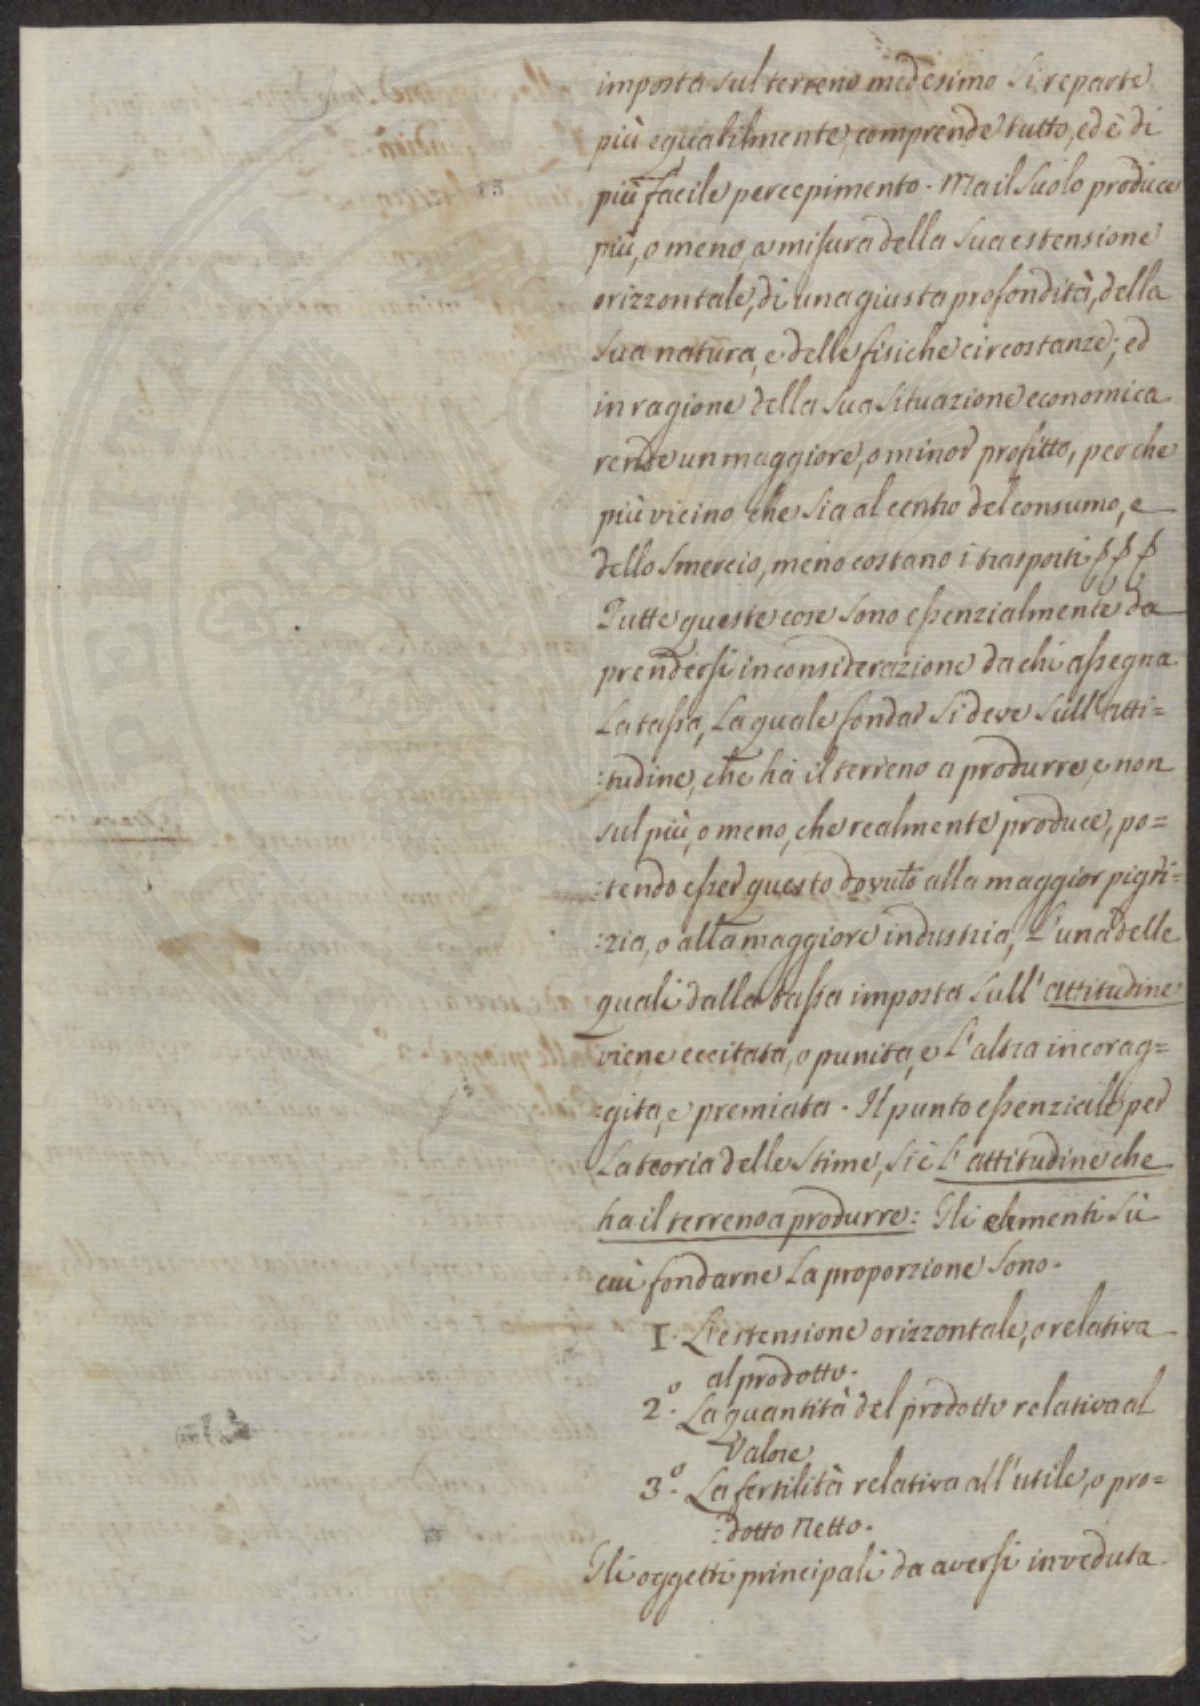 imposta sul terreno medesimo si reparte
più egualilmente, comprende tutto, ed è di
più facile percepimento. Ma il suolo produce
più, o meno, a misura della sua estensione
orizzontale, di una giusta profondità, della
sua natura, e delle fisiche circostanze; ed
in ragione della sua situazione economica
rende un maggiore, o minor profitto, perche
più vicino che sia al centro del consumo, e
dello smercio, meno costano i trasporti
Tutte queste cose sono essenzialmente da
prendersi in considerazione da chi assegna
la tassa, la quale fondar si deve sull'atti=
:tudine, che ha il terreno a produrre, e non
sul più, o meno, che realmente produce, po=
:tendo esser questo dovuto alla maggior pigri=
:zia, o alla maggiore industria, l'una delle
quali dalla tassa imposta sull'attitudine
viene eccitata, o punita, e l'altra incorag=
:gita, e premiata. Il punto essenziale per
la teoria delle stime, si è l'attitudine che
ha il terreno a produrre: Gli elementi sù
cui fondarne la proporzione sono.
1. L'estensione orizzontale, o relativa
al prodotto.
2.º La quantità del prodotto relativa al
valore
3.º La fertilità relativa all'utile, o pro=
:dotto netto.
Gli oggetti principali da aversi in veduta
15